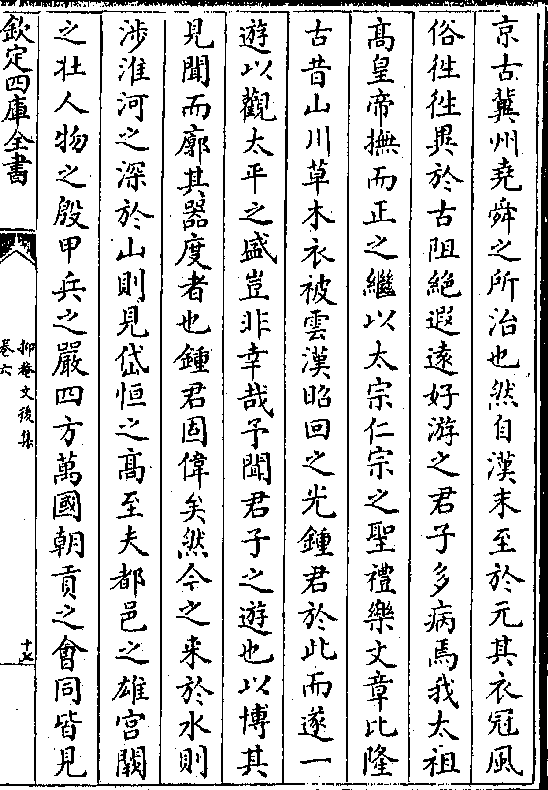 京古冀州堯舜之所治也然自漢末至於元其衣冠風
俗徃徃異於古阻絶遐遠好游之君子多病焉我太祖
髙皇帝撫而正之繼以太宗仁宗之聖禮樂文章比隆
古昔山川草木衣被雲漢昭回之光鍾君於此而遂一
遊以觀太平之盛豈非幸哉予聞君子之遊也以博其
見聞而廓其器度者也鍾君固偉矣然今之来於水則
渉淮河之深於山則見岱恒之髙至夫都邑之雄宫闕
之壮人物之殷甲兵之嚴四方萬國朝貢之會同皆見
欽定四庫全書
抑菴文後集
卷六
十七